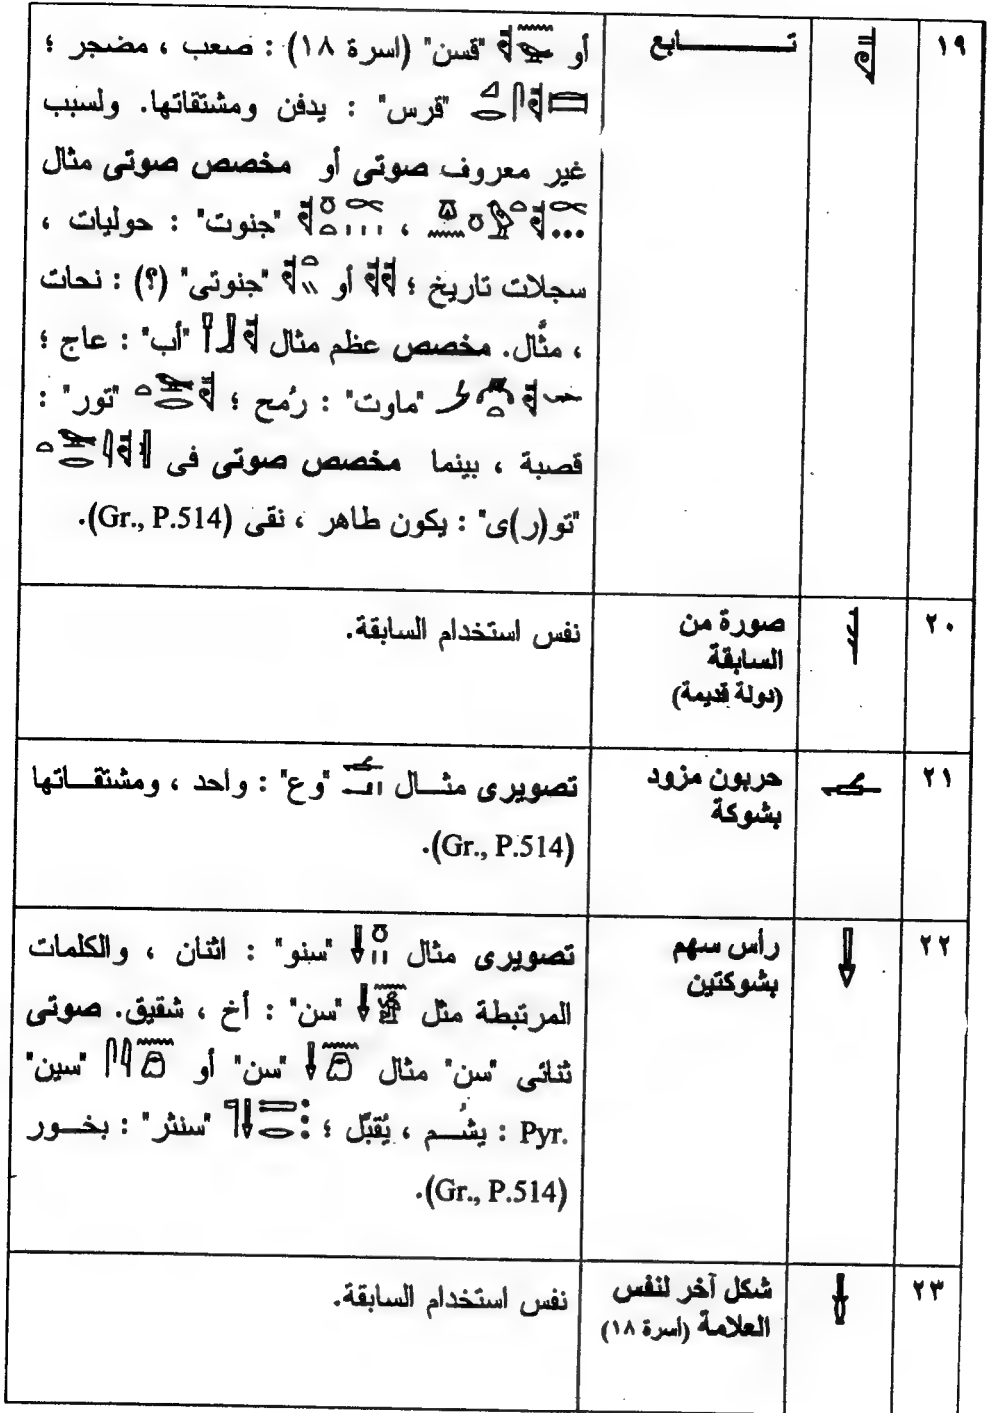 ١٩ تـــــــابع أو "قسن" (اسرة ١٨) : صعب ، مضجر ؛
"قرس" : يدفن ومشتقاتها. ولسبب
غير معروف صوتى أو مخصص صوتى مثال
، "جنوت" : حوليات ،
سجلات تاريخ ؛ أو "جنوتى" (؟) : نحات
، مثَّال. مخصص عظم مثال "أب" : عاج ؛
"ماوت" : رُمح ؛ "تور" :
قصبة ، بينما مخصص صوتى فى
"تو(ر)ى" : يكون طاهر ، نقى (Gr., P.514).
٢٠ صورة من نفس استخدام السابقة.
السابقة
(دولة قديمة)
٢١ حربون مزود تصويرى مثـــال "وع" : واحد ، ومشتقـــاتها
بشوكة (Gr., P.514).
٢٢ رأس سهم تصويرى مثال "سنو" : اثنان ، والكلمات
بشوكتين المرتبطة مثل "سن" : أخ ، شقيق. صوتى
ثنائى "سن" مثال "سن" أو "سين"
Pyr. : يشُـــم ، يُقبّل ؛ "سنثر" : بخـــور
(Gr., P.514).
٢٣ شكل آخر لنفس نفس استخدام السابقة.
العلامة (أسرة ١٨)